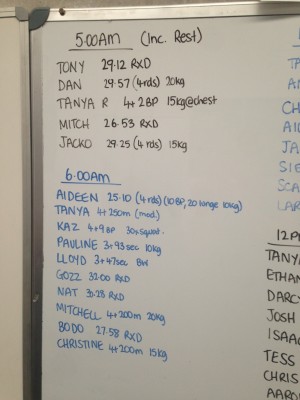 5:00AM (Inc. Rest)
TONY 29.12 RXD
DAN 29.57 (4rds) 20kg
TANYA R 4+2BP 15kg@chest
MITCH 26.53 RXD
JACKO 29.25 (4 rds) 15kg
6:00AM
AIDEEN 25.10 (4rds) (10BP, 20 lunge 10kg)
TANYA 4+250m (mod)
KAZ 4+9BP 30xsquat.
PAULINE 3+93sec 10kg
LLOYD 3+47sec BW
GOZZ 32:00 RXD
NAT RXD
MITCHELL 4+200m 20kg
BODO 27.58 RXD
CHRISTINE 4+200m 15kg
12P
TANY
ETHAN
DARCY
JOSH
ISAAC
TESS
CHRIS
AARO